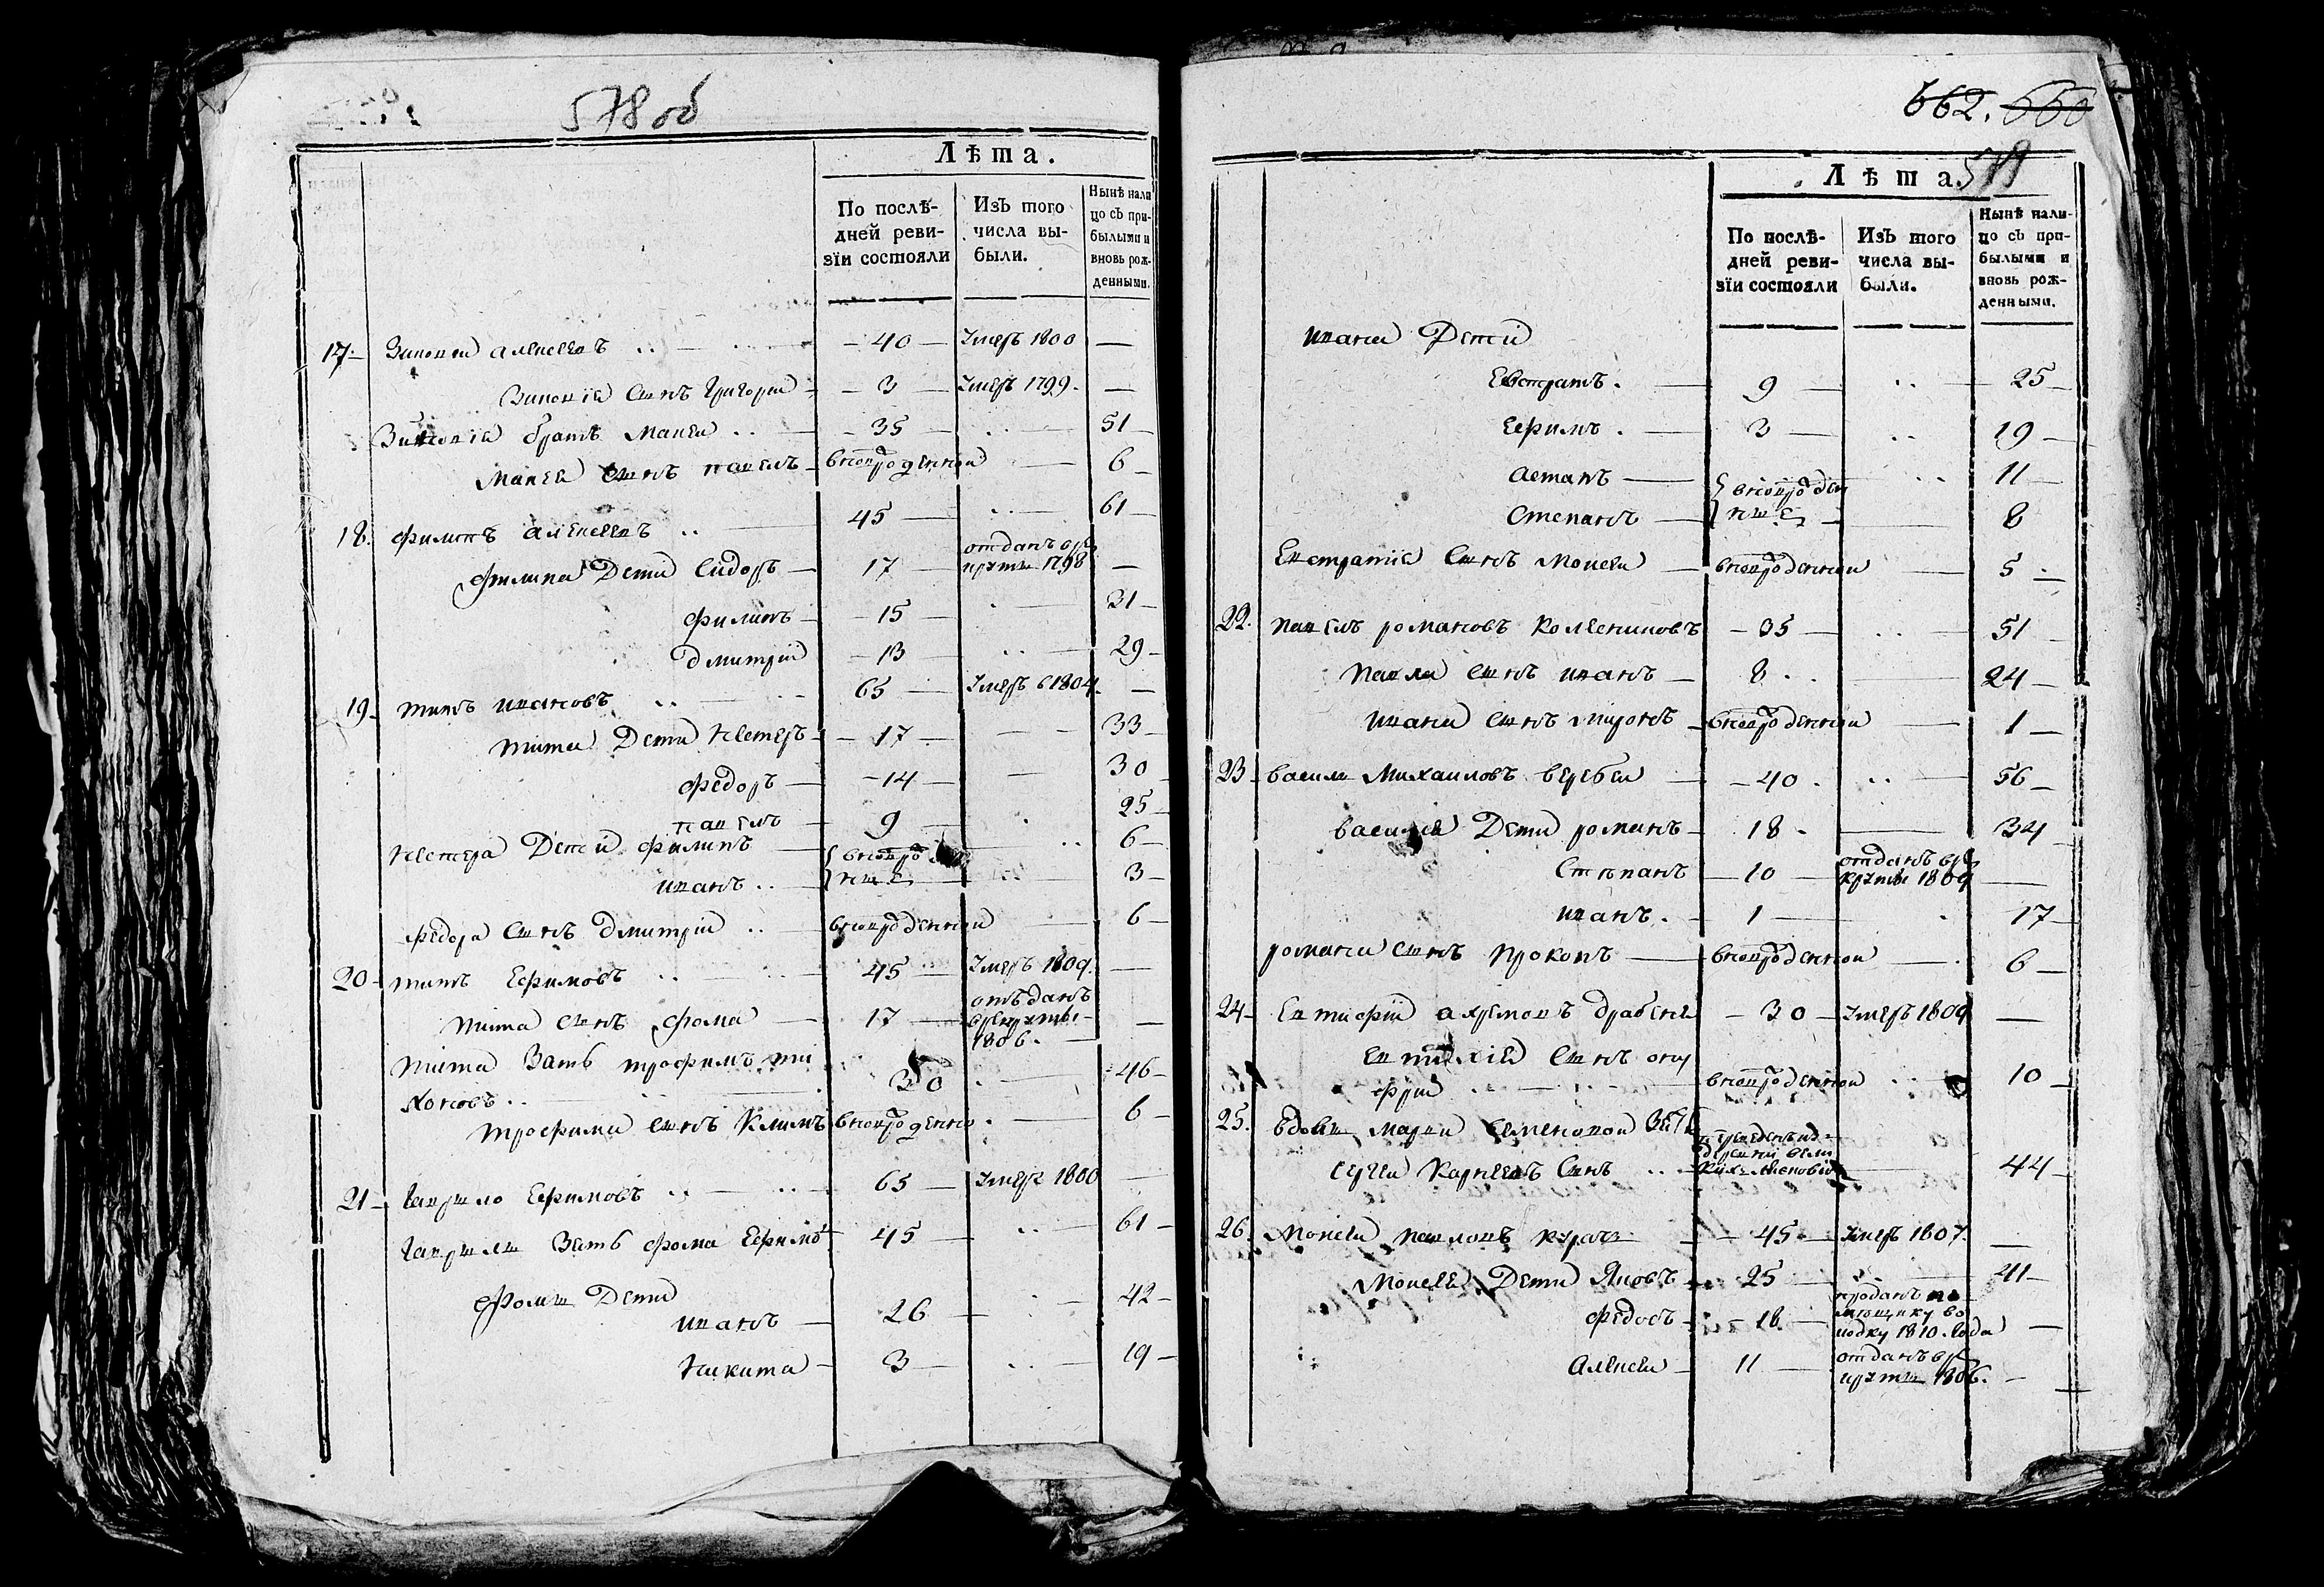 578 об
Лѣта.
По послѣ-
дней реви-
зїи состояли
Изъ того
числа вы-
были.
Нынѣ нали
цо съ при-
былыми и
вновь рож-
денными.
17 Зиновей алексеевъ — 40 — Умеръ 1800 —
Зиновіа Сынъ Григорей — 3 — Умеръ 1799. —
Зиновіа братъ Макей — 35 — 51 —
Макея Сынъ павелъ — вновьрожденной — 6 —
18. филипъ алексеевъ 45 — 61 —
филипа Дети Сидоръ — 17 — отданъ в ре
круты 1798 —
филипъ — 15 — 31 —
дмитрій — 13 — 29 —
19. титъ ивановъ 65 — Умеръ в 1804. —
тита Дети Нестеръ — 17 — 33 —
федоръ — 14 — 30
павелъ — 9 — 25
Нестера Детей филипъ — вновьрожден 6 —
иванъ — ные 3 —
федора Сынъ дмитрій — вновьрожденной — 6 —
20 титъ Ефимовъ — 45 — Умеръ 1809. —
тита Сынъ фома — 17 — отъданъ
врекруты
1806. —
тита Зать трофимъ ти
хоновъ 30 — 46 —
трофима Сынъ Климъ вновьрожденно — 6 —
21 гаврило Ефимовъ — 65 — Умеръ 1800 —
гаврилы Зать фома Ефимовъ 45 — 61 —
фомы Дети
иванъ — 26 — 42 —
Никита — 3 — 19 —
662. 660
579
Лѣта.
По послѣ-
дней реви-
зїи состояли
Изъ того
числа вы-
были.
Нынѣ нали-
цо съ при-
былыми и
вновь рож-
денными.
ивана Детей
Евстратъ. — 9 — 25 —
Ефимъ. — 3 — 19 —
астапъ — вновьрожден 11 —
Степанъ — ные 8
Евстратіа Сынъ Моисей — вновьрожденной — 5 —
22. павелъ романовъ — 35 — 51
павла Сынъ иванъ — 8 — 24 —
ивана Сынъ миронъ — вновьрожденной — 1 —
23 василь Михаиловъ веребей — 40 — 56 —
василіа Дети романъ — 18 — 34
Степанъ — 10 — отданъ в ре
круты 1809 —
иванъ. — 1 — 17 —
романа Сынъ прокопъ — вновьрожденной — 6 —
24 — 30 — Умеръ 1809 —
Сынъ ону
фрій — вновьрожденной 10 —
25. Вдовы марьи Семеновой Зать
Сергей Карнеевъ Сынъ переведенъ из
деревни вели
44 —
26. Моисей павловъ — 45 — Умеръ 1807. —
Моисея Дети Яковъ — 25 — 41 —
федосъ — 18 — проданъ по
мещику во
1810. года —
Алексей — 11 — отданъ в ре
круты 1806. —